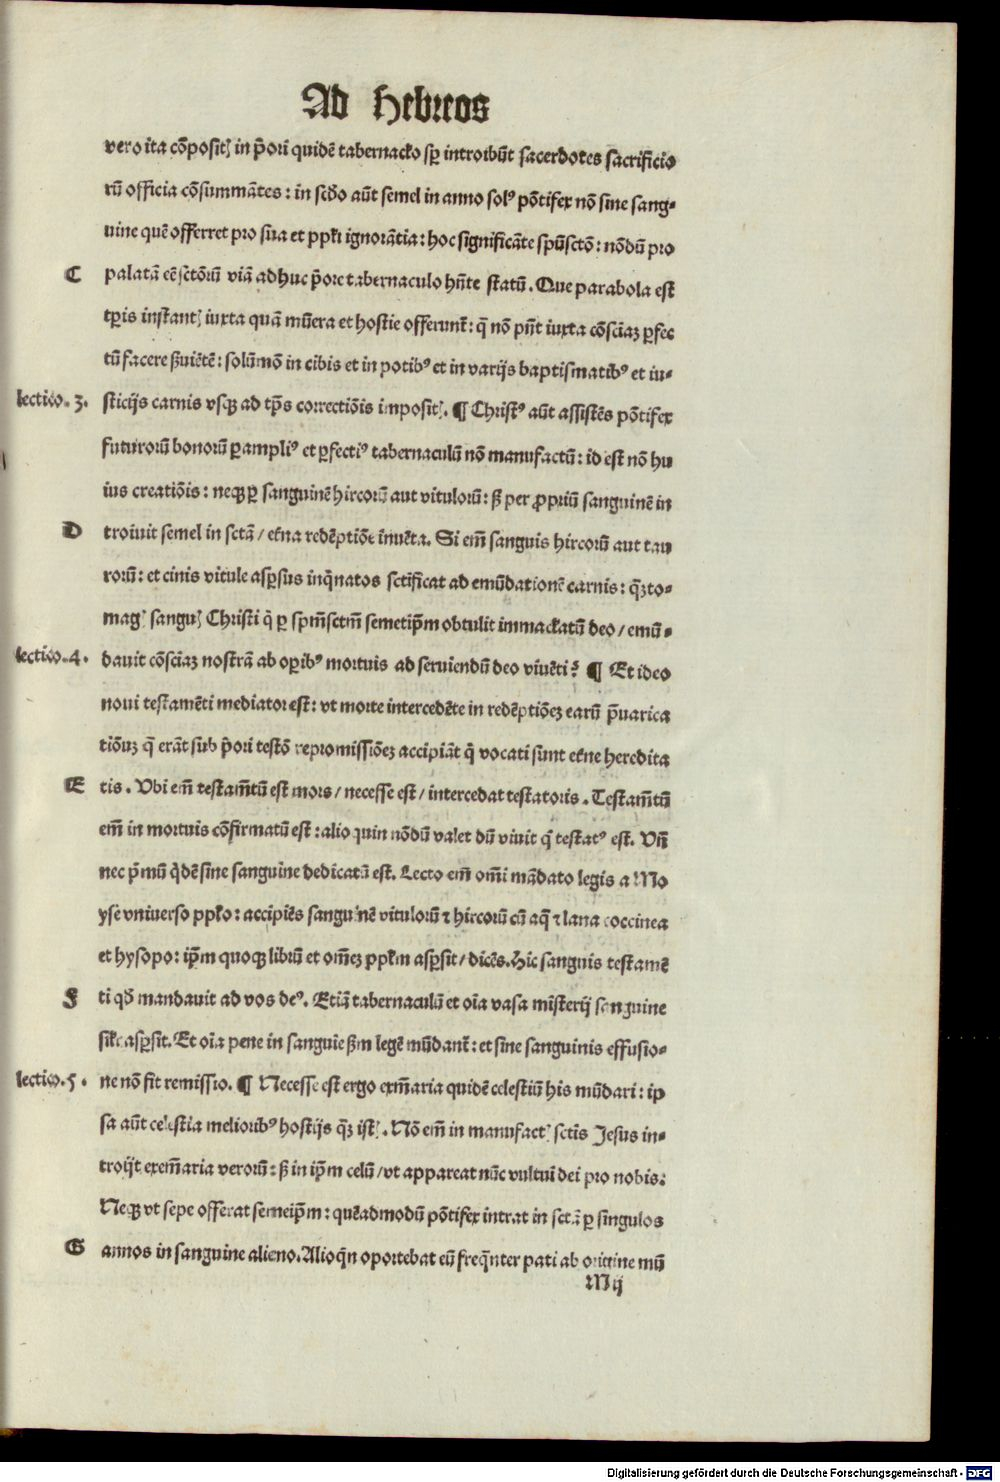 Ad Hebreos
vero ita cōpositꝭ in p̄ori quidē tabernaclo sꝑ introibūt sacerdotes sacrificio
rū officia cōsummātes : in scd̄o aūt semel in anno solꝰ pōtifex nō sine sang⸗
uine quē offerret pro sua et ppl̄i ignorātia : hoc significāte spūsctō : nōdū pro
C palatā eē sctōrū viā adhuc p̄ore tabernaculo hn̄te statū . Que parabola est
tp̄is instantꝭ iuxta quā mūera et hostie offerunt̄ : q̄ nō pn̄t iuxta cōsciaꝫ ꝑfec
tū facere ẜuiētē : solūmō in cibis et in potibꝰ et in varijs baptismatibꝰ et iu⸗
lectio. 3. sticijs carnis vsqꝫ ad tp̄s correctiōis impositꝭ. ¶ Christꝰ aūt assistēs pōtifex
futurorū bonorū ꝑampliꝰ et ꝑfectiꝰ tabernaculū nō manufactū : id est nō hu
ius creatiōis : neqꝫ ꝑ sanguinē hircorū aut vitulorū : ẜꝫ per ꝓpriū sanguinē in
D troiuit semel in sctā / et̄na redēptiōe inuēta. Si em̄ sanguis hircorū aut tau
rorū : et cinis vitule asꝑsus inq̄natos sctificat ad emūdationē carnis : q̄ꝫto⸗
magꝭ sanguꝭ Christi q̄ ꝑ spm̄sctm̄ semetip̄m obtulit immaclatū deo / emū⸗
lectio. 4. dauit cōsciaꝫ nostrā ab oꝑibꝰ mortuis ad seruiendū deo viuēti ? ¶ Et ideo
noui testamēti mediator est : vt morte intercedēte in redēptiōeꝫ earū p̄uarica
tiōuꝫ q̄ erāt sub p̄ori testō repromissiōeꝫ accipiāt q̄ vocati sunt et̄ne heredita
E tis . Vbi em̄ testam̄tū est mors / necesse est / intercedat testatoris . Testam̄tū
em̄ in mortuis cōfirmatū est : alio quin nōdū valet dū viuit q̄ testatꝰ est. Vn̄
nec p̄mū q̄dē sine sanguine dedicatū est. Lecto em̄ om̄i mādato legis a Mo
yse vniuerso ppl̄o : accipiēs sanguinē vitulorū ⁊ hircorū cū aq̄ ⁊ lana coccinea
et hysopo : ip̄m quoqꝫ librū et om̄eꝫ ppl̄m asꝑsit / dicēs. Hic sanguis testamē
F ti qd̄ mandauit ad vos deꝰ. Etiā tabernaculū et oīa vasa mīsterij sanguine
sil̄r asꝑsit. Et oīa pene in sanguīe ẜm legē mūdant̄ : et sine sanguinis effusio⸗
lectio. 5. ne nō fit remissio. ¶ Necesse est ergo exm̄aria quidē celestiū his mūdari : ip
sa aūt celestia melioribꝰ hostijs q̄ꝫ istꝭ. Nō em̄ in manufactꝭ sctīs Jesus in⸗
troijt exem̄aria verorū : ẜꝫ in ip̄m celū / vt appareat nūc vultui dei pro nobis :
Neqꝫ vt sepe offerat semeip̄m : quēadmodū pōtifex intrat in sctā ꝑ singulos
G annos in sanguine alieno. Alioq̄n oportebat eū freq̄nter pati ab origine mū
M ij
Digitalisierung gefördert durch die Deutsche Forschungsgemeinschaft - DFG